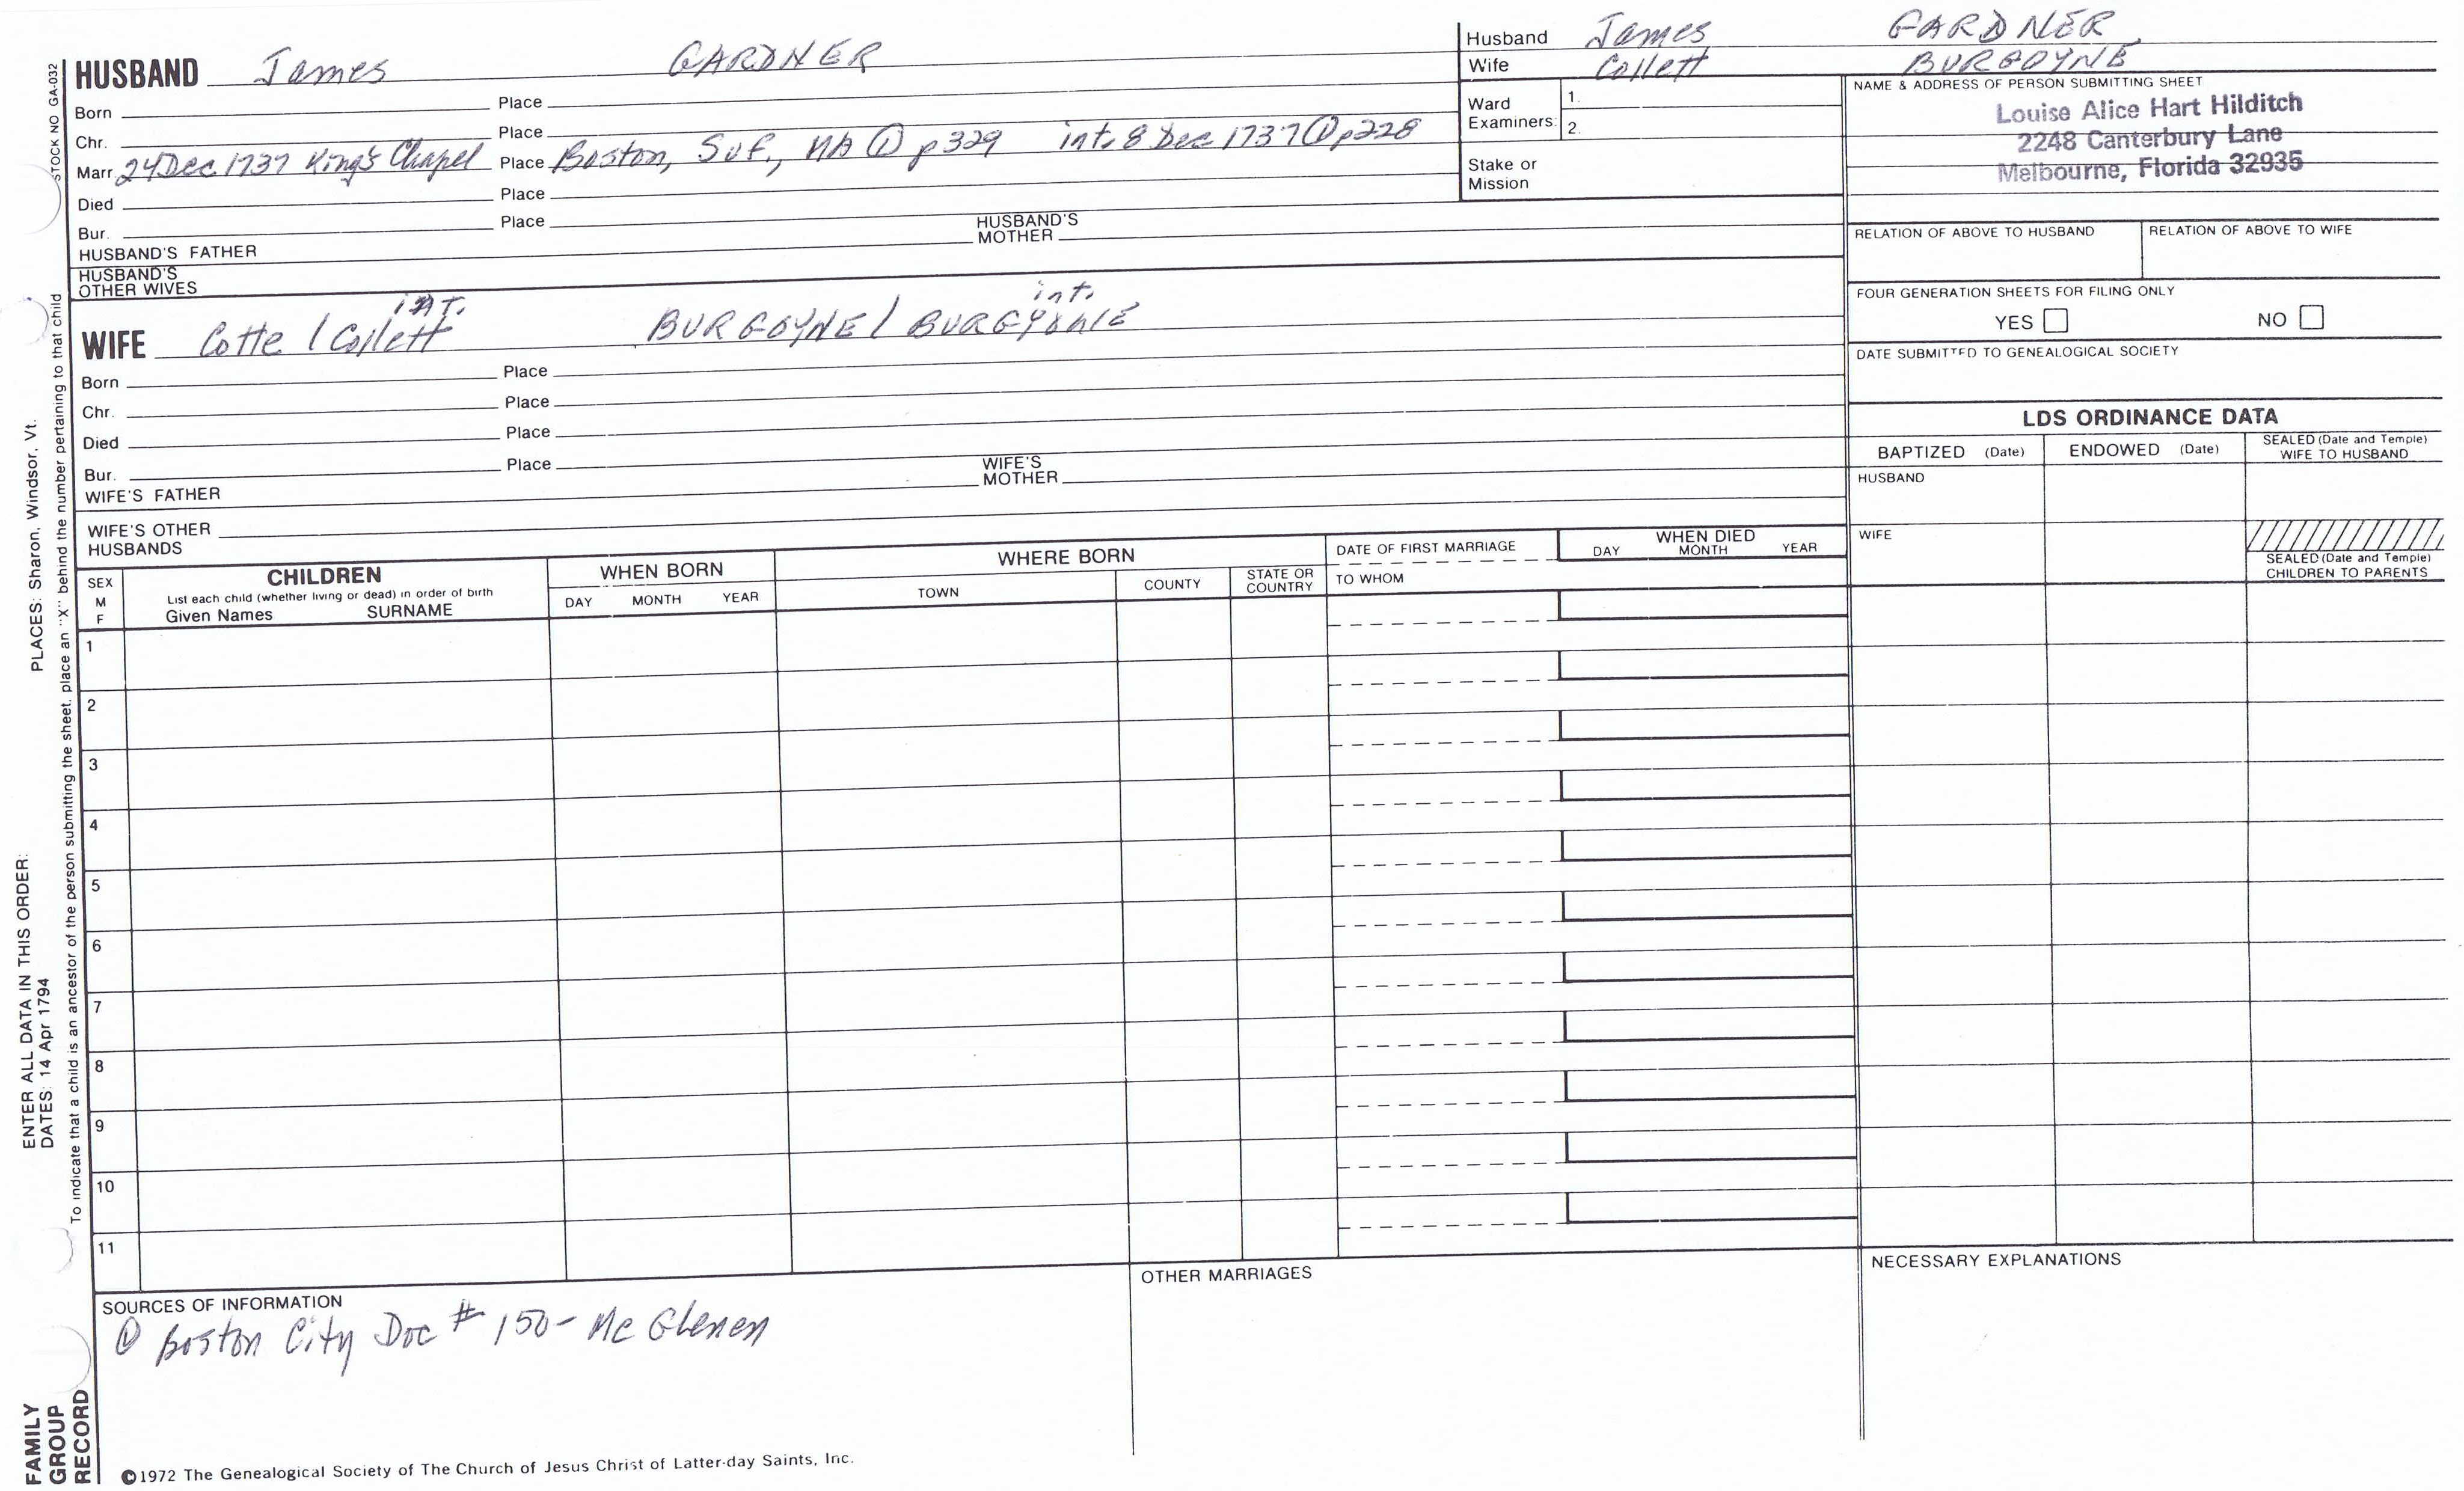 STOCK NO GA-032
HUSBAND James GARDNER
Born Place
Chr. Place
Marr. 24 Dec 1737 King's Chapel Place Boston, Suf., MA ① p329 int. 8 Dec 1737 ① p228
Died Place
Bur. Place
HUSBAND'S FATHER HUSBAND'S MOTHER
HUSBAND'S OTHER WIVES
int. int.
WIFE Cotte / Collett BURGOYNE /
Born Place
Chr. Place
Died Place
Bur. Place
WIFE'S FATHER WIFE'S MOTHER
WIFE'S OTHER HUSBANDS
Husband James GARDNER
Wife Collett BURGOYNE
Ward Examiners: 1.
2.
Stake or Mission
NAME & ADDRESS OF PERSON SUBMITTING SHEET
Louise Alice Hart Hilditch
2248 Canterbury Lane
Melbourne, Florida 32935
RELATION OF ABOVE TO HUSBAND RELATION OF ABOVE TO WIFE
FOUR GENERATION SHEETS FOR FILING ONLY
YES NO
DATE SUBMITTED TO GENEALOGICAL SOCIETY
LDS ORDINANCE DATA
BAPTIZED (Date) ENDOWED (Date) SEALED (Date and Temple) WIFE TO HUSBAND
HUSBAND
WIFE
SEALED (Date and Temple) CHILDREN TO PARENTS
SEX M F
CHILDREN
List each child (whether living or dead) in order of birth
Given Names SURNAME
WHEN BORN
DAY MONTH YEAR
WHERE BORN
TOWN COUNTY STATE OR COUNTRY
DATE OF FIRST MARRIAGE
TO WHOM
WHEN DIED
DAY MONTH YEAR
1
2
3
4
5
6
7
8
9
10
11
SOURCES OF INFORMATION
① Boston City Doc # 150 - McGlenen
OTHER MARRIAGES
NECESSARY EXPLANATIONS
©1972 The Genealogical Society of The Church of Jesus Christ of Latter-day Saints, Inc.
FAMILY
GROUP
RECORD
ENTER ALL DATA IN THIS ORDER:
DATES: 14 Apr 1794
PLACES: Sharon, Windsor, Vt.
To indicate that a child is an ancestor of the person submitting the sheet, place an "X" behind the number pertaining to that child